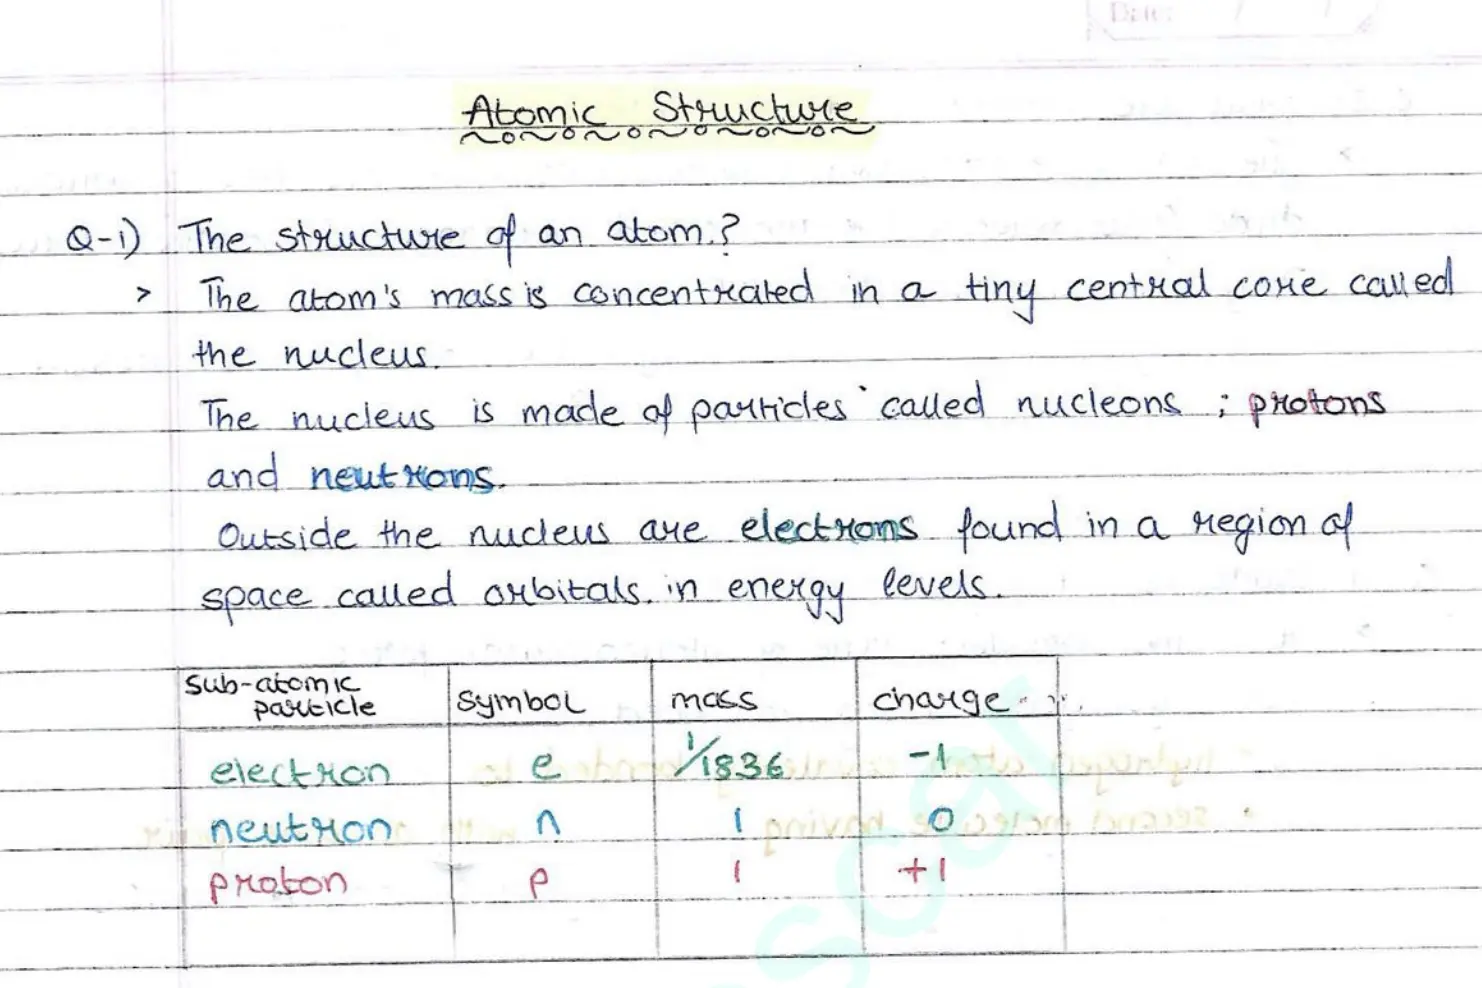 Date: / /
Atomic Structure
Q-1) The structure of an atom.?
> The atom's mass is concentrated in a tiny central core called
the nucleus.
The nucleus is made of particles called nucleons ; protons
and neutrons.
Outside the nucleus are electrons found in a region of
space called orbitals. in energy levels.
sub-atomic particle symbol mass charge
electron e 1/1836 -1
neutron n 1 0
proton p 1 +1